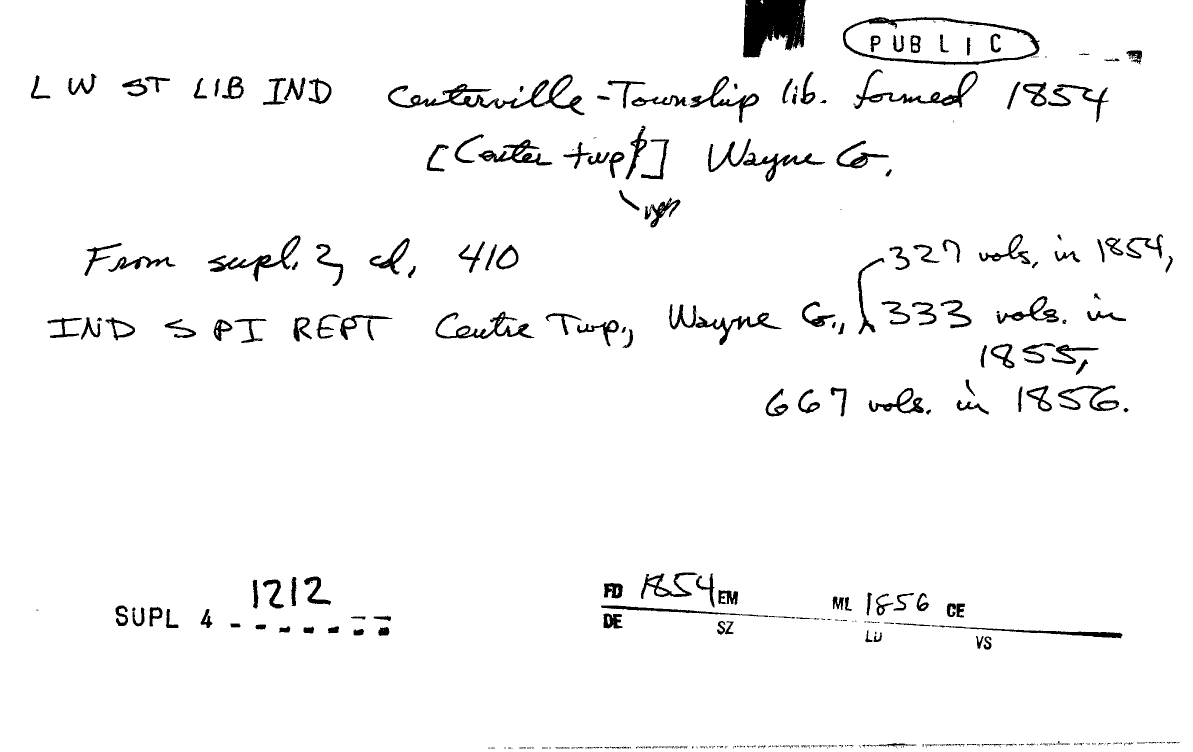 PUBLIC
L W ST LIB IND Centerville-Township lib. formed 1854
[Center twp?] Wayne Co.
yes
From supl. 2, cd, 410
327 vols, in 1854,
IND S PI REPT Centre Twp., Wayne Co., 333 vols. in
1855,
667 vols. in 1856.
1212
SUPL 4
FD 1854 EM ML 1856 CE
DE SZ LD VS